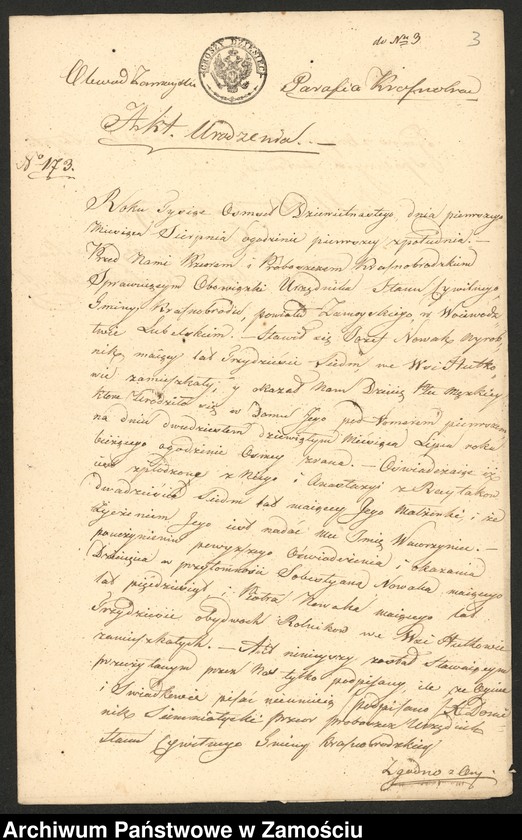 do Nru 3.
3
GROSZY DZIESIĘĆ
Obwod Zamoyski
Parafia Krasnobrod
Akt Urodzenia. —
No 173.
Roku Tysiąc Osmset Dziewietnastego, dnia pierwszego
Miesiąca Sierpnia ogodzinie pierwszey zpołudnia. —
Przed Nami Xiedzem i Proboszczem Krasnobrodzkim
Sprawuiącym Obowiązki Urzędnika Stanu Cywilnego
Gminy Krasnobrodu, powiatu Zamoyskiego, w Woiewodz-
twie Lubelskim. — Stawił się Jozef Nowak Wyrob-
nik, maiący lat Trzydzieście Siedm we Wsi Hutko-
wie zamieszkały; y okazał Nam Dziecię Płci Męzkiey
ktore Urodziło się w Domu Jego pod Numerem pierwszem
na dniu dwudziestem dziewiątym Miesiąca Lipca roku
bieżącego ogodzinie Osmey zrana. — Oświadczaiąc iż
iest spłodzone z Niego i Anastazyi z
dwadzieścia Siedm lat maiącey Jego Małżonki i że
życzeniem Jego iest nadać mu Imię Wawrzyniec. —
Po uczynieniu powyższego Oświadczenia i okazania
Dziecięcia w przytomności Sobestyana Nowaka maiącego
lat pięćdziesiąt i Piotra Nowaka maiącego lat
Trzydzieście obydwoch Rolnikow we Wsi Hutkowie
zamieszkałych. — Akt ninieyszy został Stawaiącym
przeczytanym przez Nas tylko podpisany, ile że Oyciec
i Swiadkowie pisać nieumieią /podpisano/ X. Domi-
nik Siemiatycki Przeor proboszcz Urzędnik
Stanu Cywilnego Gminy Krasnobrodzkiey
Zgodno z Ory.
Archiwum Państwowe w Zamościu